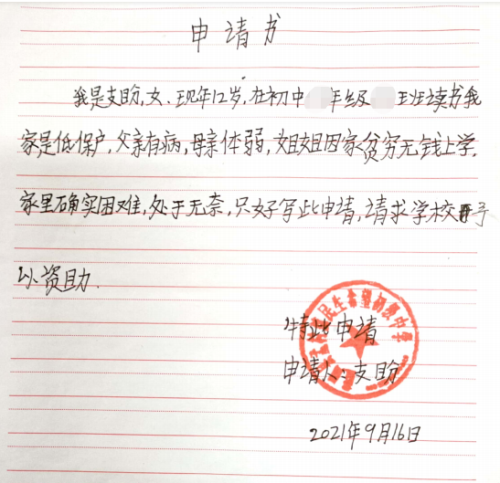 申请书
我是支盼,女、现年12岁,在初中 年级 班读书我
家是低保户,父亲有病,母亲体弱,姐姐因家贫穷无钱上学.
家里确实困难,处于无奈,只好写此申请,请求学校予
以资助.
特此申请
申请人:支盼
2021年9月16日
民生希望初级中学